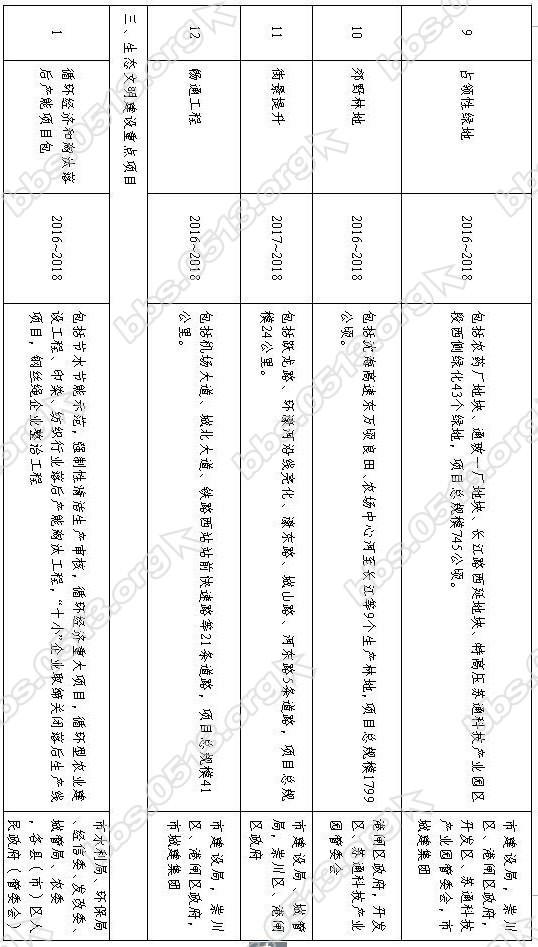 9
占领性绿地
2016~2018
包括农药厂地块、通玻一厂地块、长江路西延地块、特高压苏通科技产业园区
段西侧绿化43个绿地，项目总规模745公顷。
市建设局，崇川
区、港闸区政府，
开发区、苏通科技
产业园管委会，市
城建集团
10
郊野林地
2016~2018
包括沈海高速东万顷良田、农场中心河至长江等9个生产林地，项目总规模1799
公顷。
港闸区政府，开发
区、苏通科技产业
园管委会
11
街景提升
2017~2018
包括跃龙路、环濠河沿线亮化、濠东路、城山路、河东路5条道路，项目总规
模24公里。
市建设局、城管
局，崇川区、港闸
区政府
12
畅通工程
2016~2018
包括机场大道、城北大道、铁路西站站前快速路等21条道路，项目总规模41
公里。
市建设局，崇川
区、港闸区政府，
市城建集团
三、生态文明建设重点项目
1
循环经济和淘汰落
后产能项目包
2016~2018
包括节水节能示范，强制性清洁生产审核，循环经济重大项目，循环型农业建
设工程、印染、纺织行业落后产能淘汰工程，“十小”企业取缔关闭落后生产线
项目，钢丝绳企业整治工程
市水利局、环保局
、经信委、发改委、
城管局、农委
，各县（市）区人
民政府（管委会）
bbs.0513.org